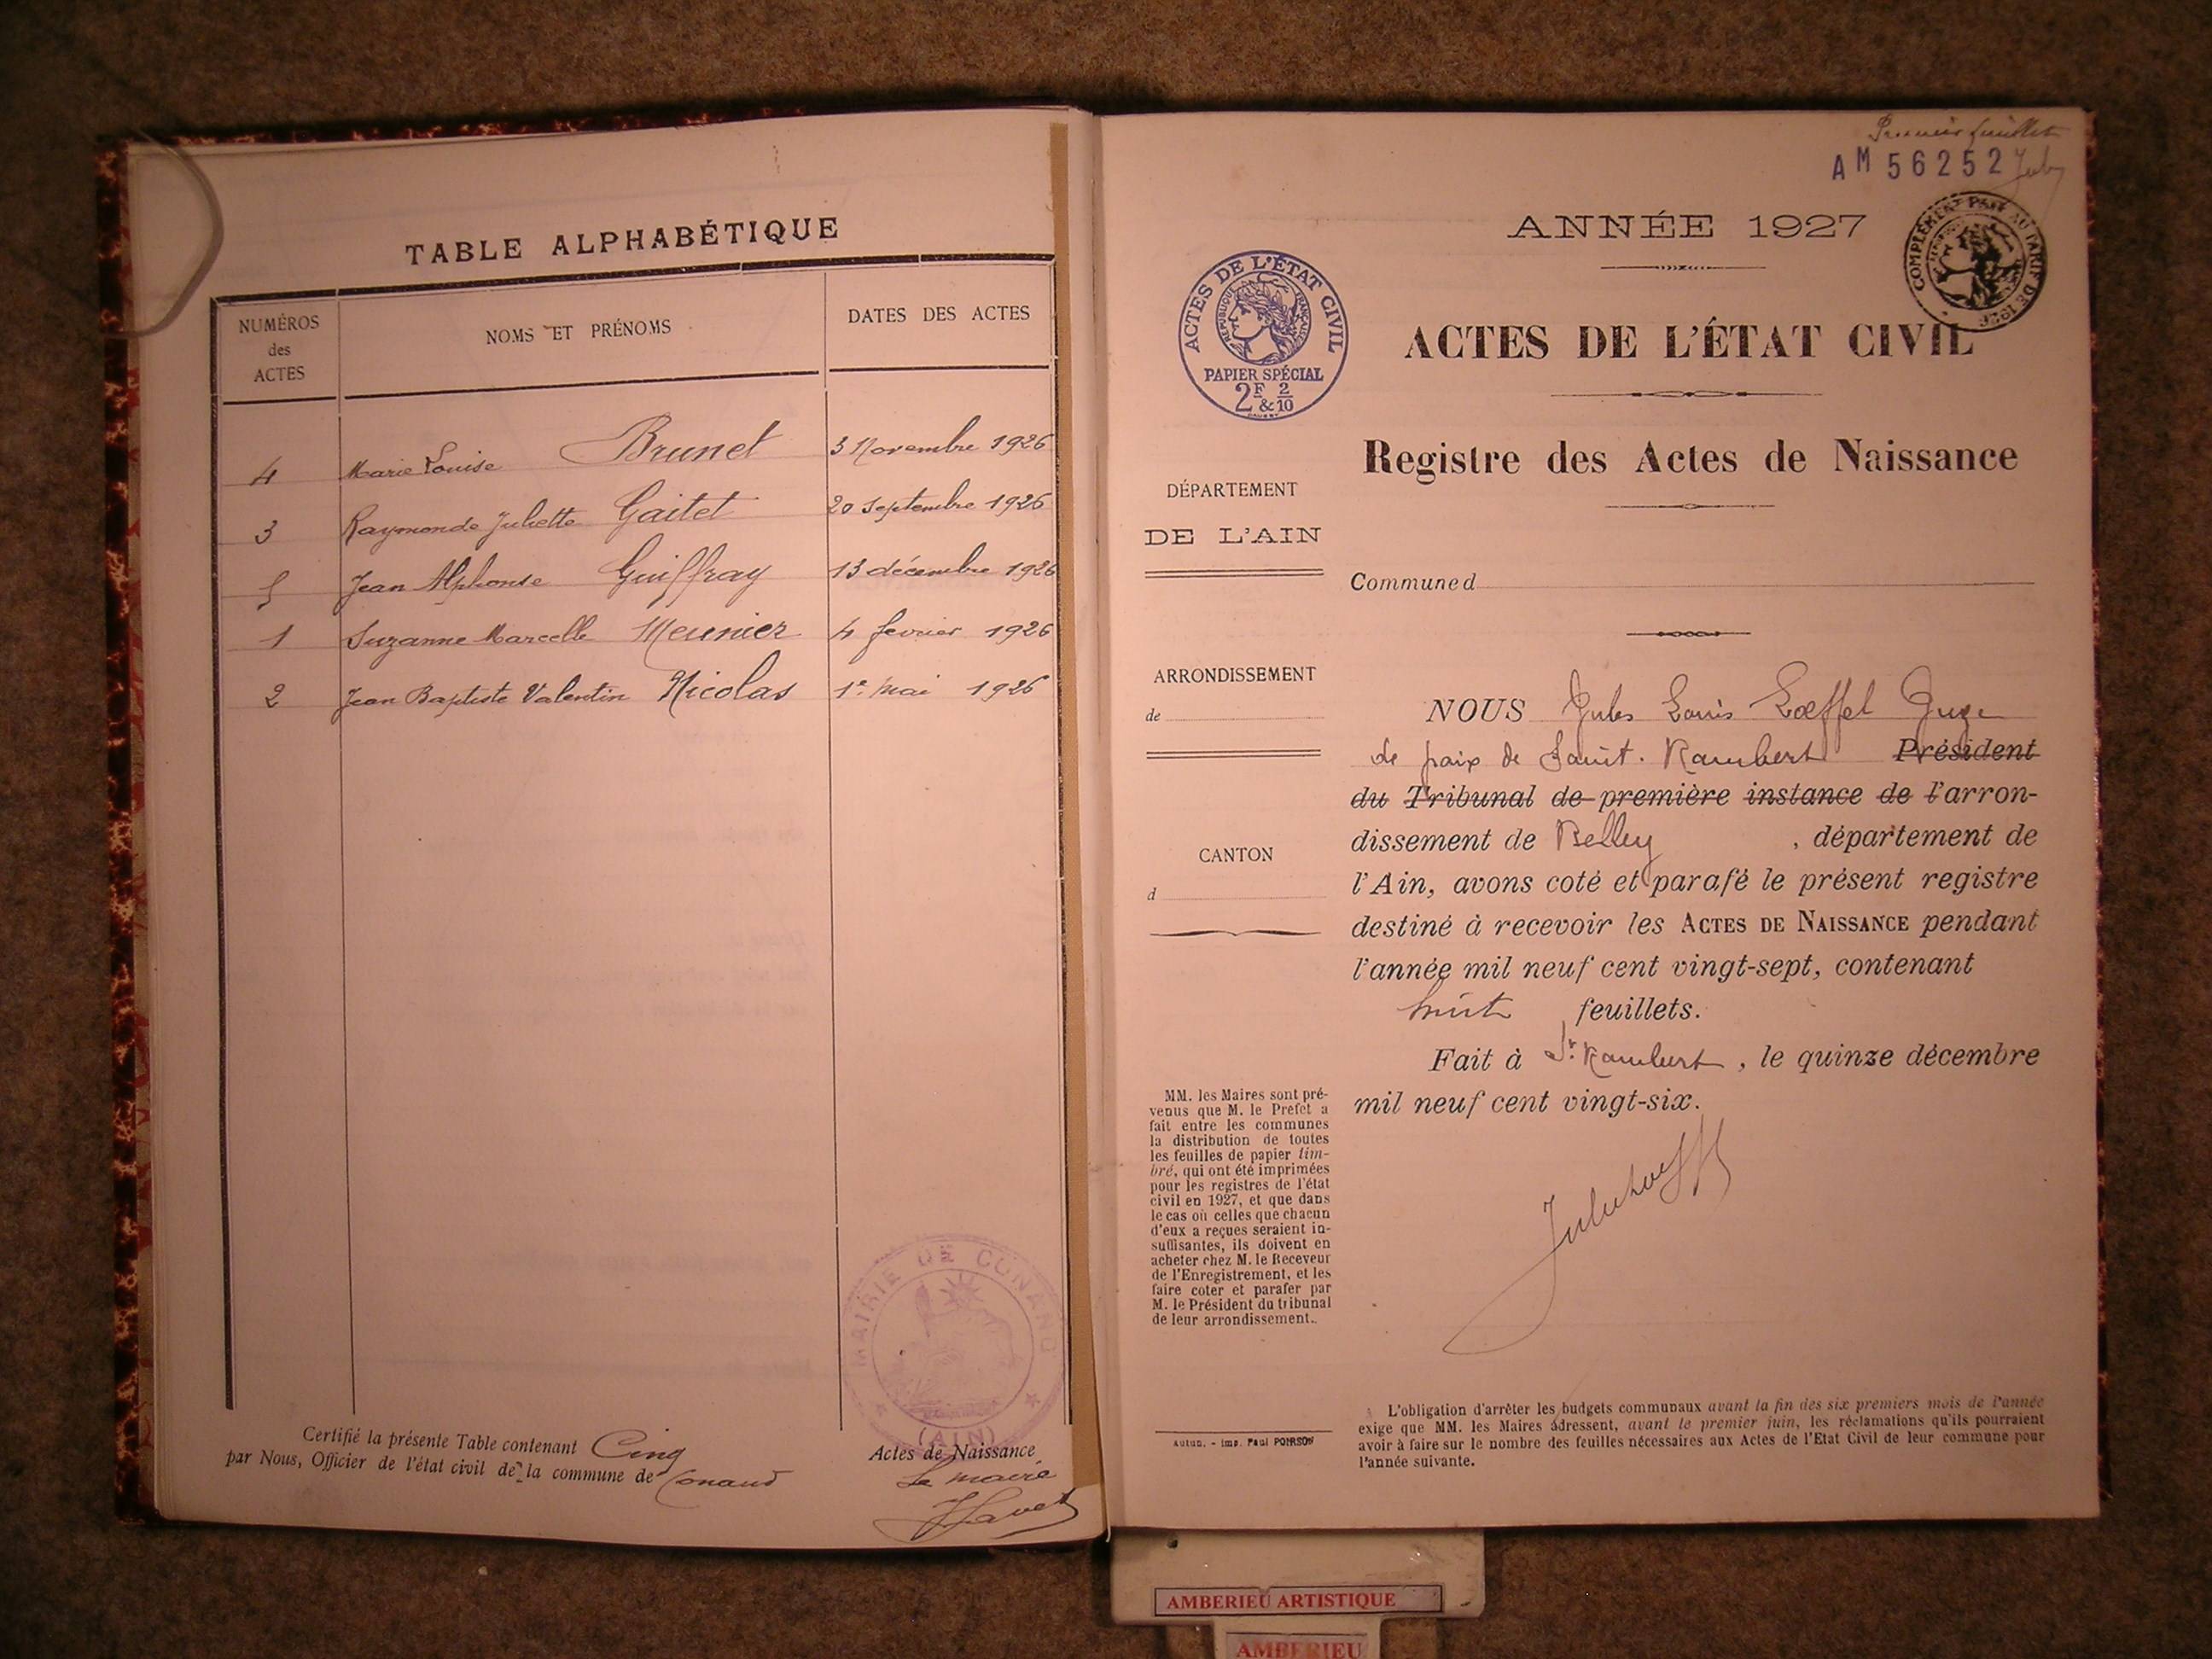 TABLE ALPHABÉTIQUE
NUMÉROS
des
ACTES
NOMS ET PRÉNOMS
DATES DES ACTES
4 Marie Louise Brunet 3 Novembre 1926
3 Raymonde Juliette Gaitet 20 Septembre 1926
5 Jean Alphonse Guiffray 13 décembre 1926
1 Suzanne Marcelle Meunier 4 fevrier 1926
2 Jean Baptiste Valentin Nicolas 1er Mai 1926
MAIRIE DE CONAND
(AIN)
Certifié la présente Table contenant Cinq Actes de Naissance
par Nous, Officier de l'état civil de la commune de Conand
Le maire
Premier feuillet
AM 56252
ANNÉE 1927
COMPLÉMENT PAYÉ AU TARIF DE 1926
ACTES DE L'ÉTAT CIVIL
RÉPUBLIQUE FRANÇAISE
PAPIER SPÉCIAL
2F & 2/10
ACTES DE L'ÉTAT CIVIL
Registre des Actes de Naissance
DÉPARTEMENT
DE L'AIN
Commune d
ARRONDISSEMENT
de
CANTON
d
NOUS Jules Louis Lœffel Juge
de paix de Saint-Rambert Président
du Tribunal de première instance de l'arron-
dissement de Belley, département de
l'Ain, avons coté et parafé le présent registre
destiné à recevoir les ACTES DE NAISSANCE pendant
l'année mil neuf cent vingt-sept, contenant
huit feuillets.
Fait à St. Rambert, le quinze décembre
mil neuf cent vingt-six.
MM. les Maires sont pré-
venus que M. le Prefet a
fait entre les communes
la distribution de toutes
les feuilles de papier tim-
bré, qui ont été imprimées
pour les registres de l'état
civil en 1927, et que dans
le cas où celles que chacun
d'eux a reçues seraient in-
suffisantes, ils doivent en
acheter chez M. le Receveur
de l'Enregistrement, et les
faire coter et parafer par
M. le Président du tribunal
de leur arrondissement.
Autun. - Imp. Paul POIRSON
L'obligation d'arrêter les budgets communaux avant la fin des six premiers mois de l'année
exige que MM. les Maires adressent, avant le premier juin, les réclamations qu'ils pourraient
avoir à faire sur le nombre des feuilles nécessaires aux Actes de l'Etat Civil de leur commune pour
l'année suivante.
AMBERIEU ARTISTIQUE
AMBERIEU